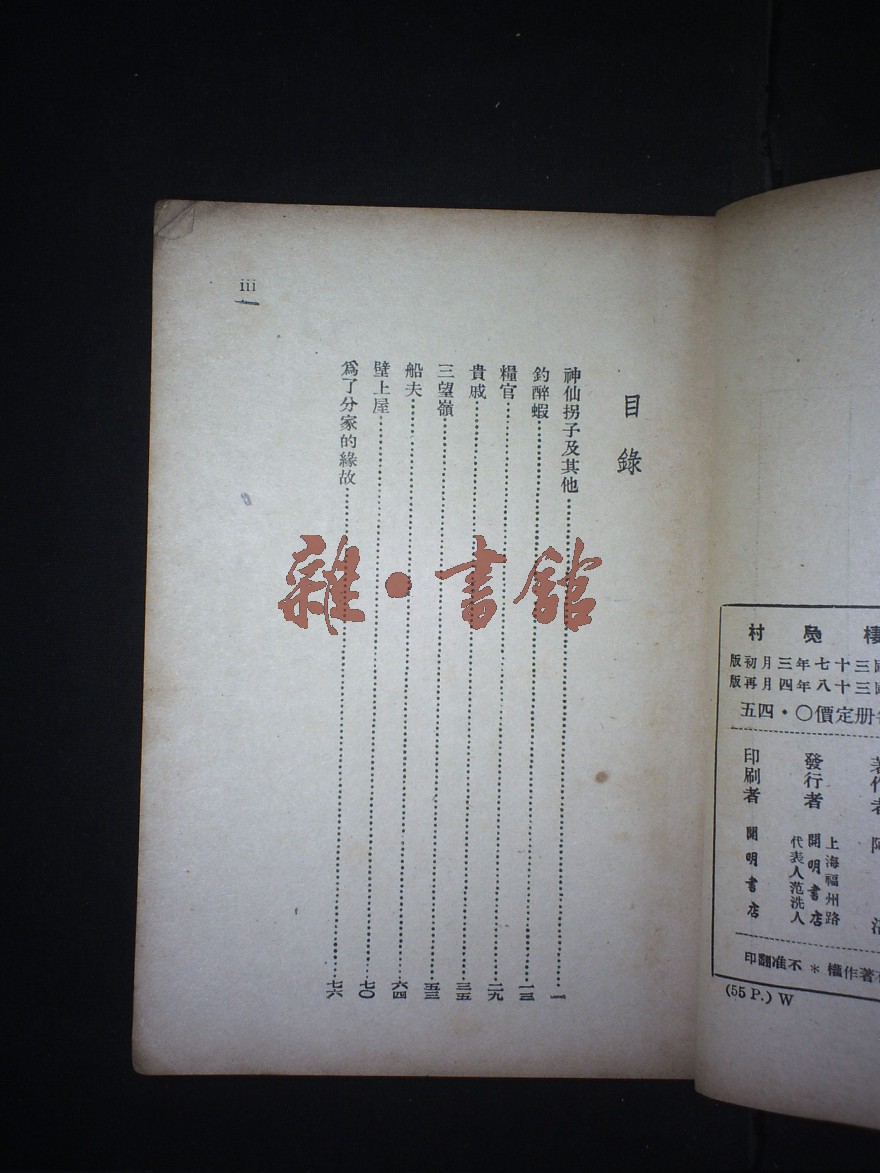 iii
目錄
神仙拐子及其他 一
釣醉蝦 一三
糧官 二九
貴戚 三五
三望嶺 五三
船夫 六四
壁上屋 七〇
爲了分家的緣故 七六
雜·書館
棲鳧村
國三十七年三月初版
國三十八年四月再版
册定價〇·四五
著作者
發行者 上海福州路 開明書店 代表人范洗人
印刷者 開明書店
著作權＊不准翻印
(55 P.) W